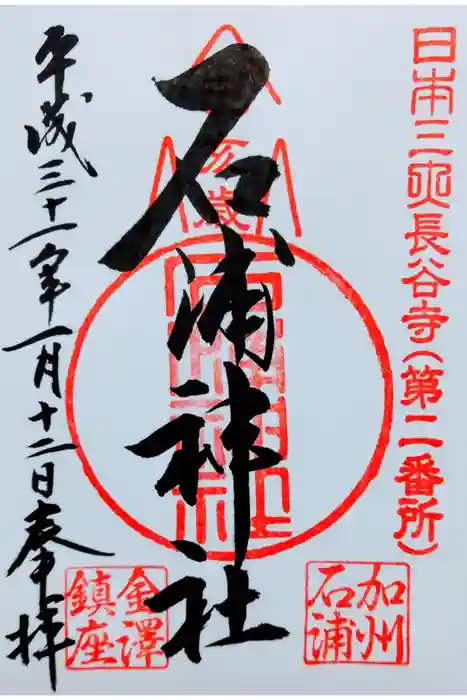 日本三所長谷寺(第二番所)
加州
石浦
亥歳
石浦神社
金澤
鎮座
平成三十一年一月十二日奉拝